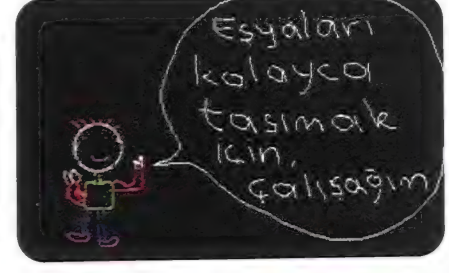 Eşyaları
kolayca
taşımak
için,
çalışağım